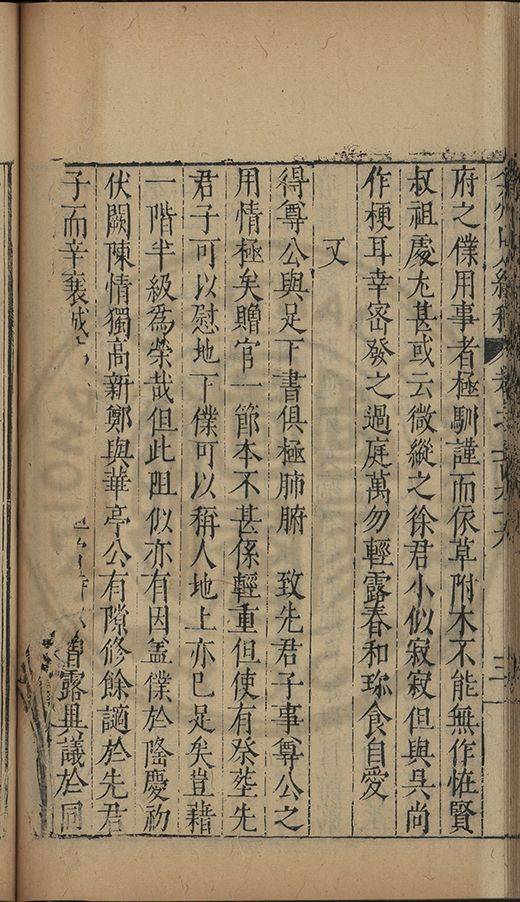 三
府之僕用事者極馴謹而依草附木不能無作恠賢
叔祖處尤甚或云微縱之徐君小似寂寂但與具尚
作梗耳幸密發之過庭萬勿輕露春和珎食自愛
又
得尊公與足下書俱極肺腑　致先君子事尊公之
用情極矣贈官一節本不甚係輕重但使有祭塋先
君子可以慰地下僕可以稱人地上亦已足矣豈藉
一階半級為榮哉但此阻似亦有因盖僕於隆慶初
伏闕陳情獨高新鄭與華亭公有隙修餘讁於先君
子而辛襄城露異議於同